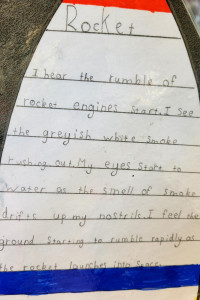 Rocket
I hear the rumble of
rocket engines start. I see
the greyish white smoke
rushing out My eyes start to
water as the smell of smoke
drifts up my nostrils. I feel the
ground starting to rumble rapidly as
the rocket launches into space.